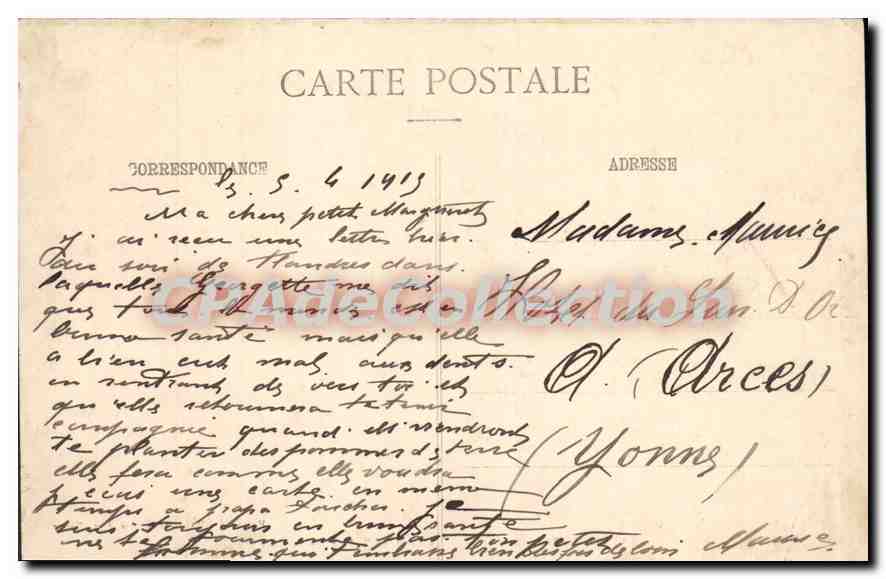 CARTE POSTALE
CORRESPONDANCE
ADRESSE
5 4 1915
Ma chere petite Marguerite
J'ai recu une lettre hier
soir de Flandres dans
laquelle Georgette me dit
que tout le monde est en
bonne santé mais qu'elle
a bien eut mal aux dents
en rentrant de voir toi et
qu'elle retournera te tenir
compagnie quand ils viendront
te planter des pommes de terre
elle fera comme elle voudra
une carte en meme
temps a papa Je
suis toujours en bonne santé
ne te tourmente pas ton petit
homme qui t'embrasse bien de loin Maurice
Madame Maurice
Hotel du Lion D'Or
A. (Arces)
(Yonne)
CPAdeCollection